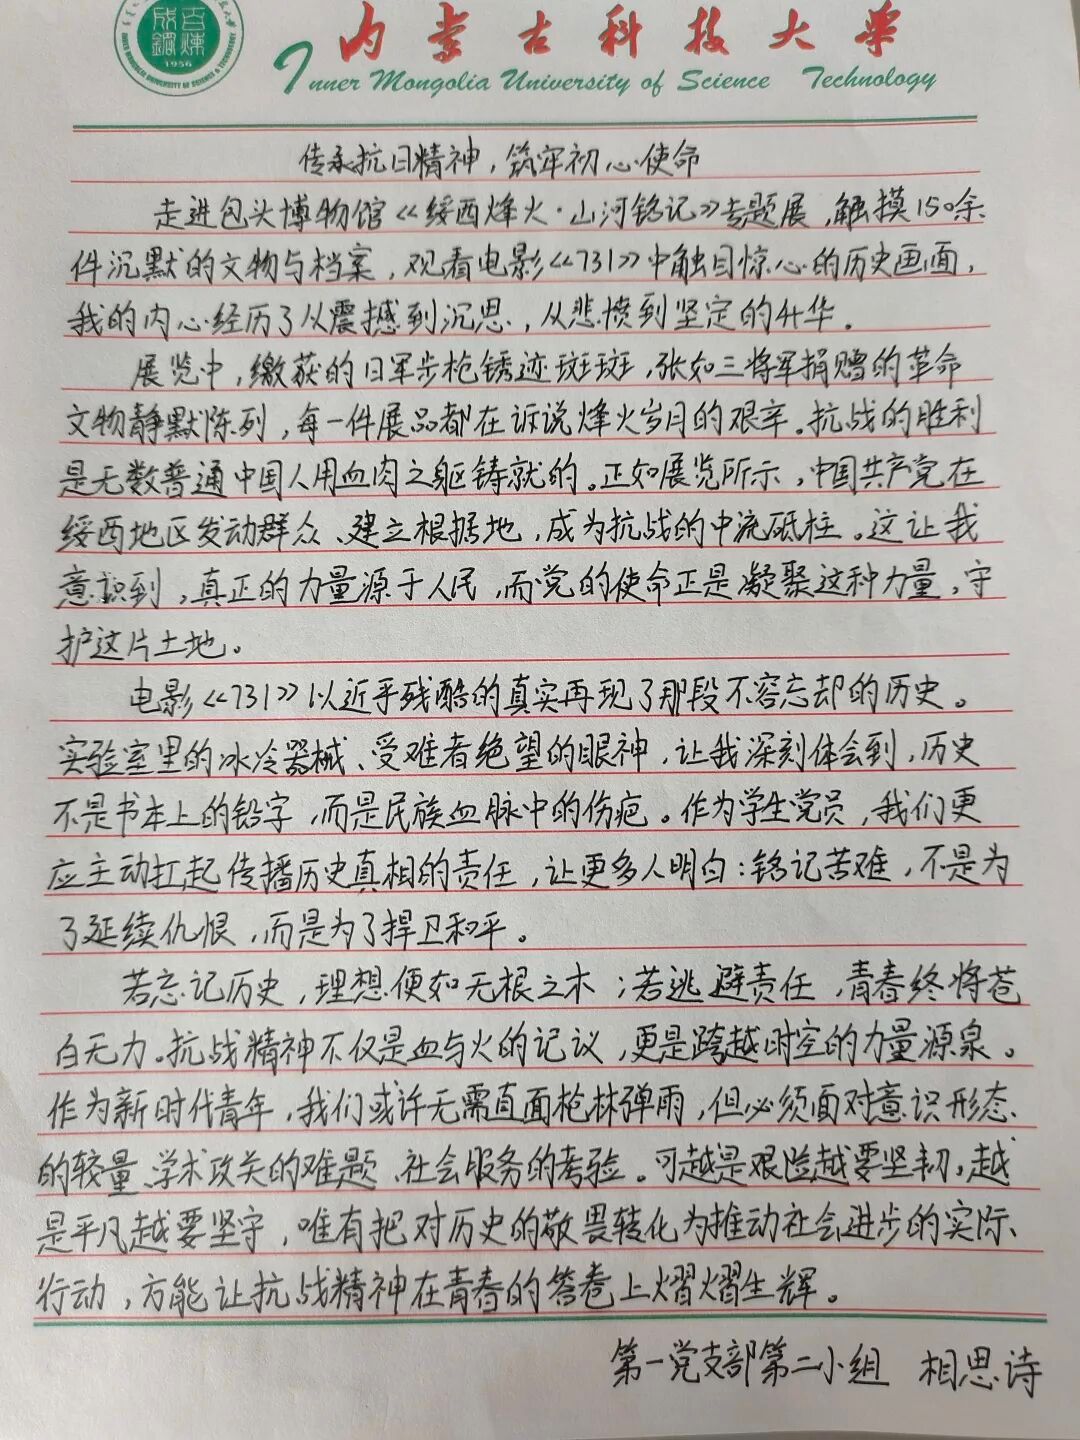 百煉成鋼
1956
INNER MONGOLIA UNIVERSITY OF SCIENCE & TECHNOLOGY
内蒙古科技大学
Inner Mongolia University of Science Technology
传承抗日精神，筑牢初心使命
走进包头博物馆《绥西烽火·山河铭记》专题展，触摸150余
件沉默的文物与档案，观看电影《731》中触目惊心的历史画面，
我的内心经历了从震撼到沉思，从悲愤到坚定的升华。
展览中，缴获的日军步枪锈迹斑斑，张如三将军捐赠的革命
文物静默陈列，每一件展品都在诉说烽火岁月的艰辛。抗战的胜利
是无数普通中国人用血肉之躯铸就的。正如展览所示，中国共产党在
绥西地区发动群众、建立根据地，成为抗战的中流砥柱。这让我
意识到，真正的力量源于人民，而党的使命正是凝聚这种力量，守
护这片土地。
电影《731》以近乎残酷的真实再现了那段不容忘却的历史。
实验室里的冰冷器械、受难者绝望的眼神，让我深刻体会到，历史
不是书本上的铅字，而是民族血脉中的伤疤。作为学生党员，我们更
应主动扛起传播历史真相的责任，让更多人明白：铭记苦难，不是为
了延续仇恨，而是为了捍卫和平。
若忘记历史，理想便如无根之木；若逃避责任，青春终将苍
白无力。抗战精神不仅是血与火的记议，更是跨越时空的力量源泉。
作为新时代青年，我们或许无需直面枪林弹雨，但必须面对意识形态
的较量、学术攻关的难题、社会服务的考验。可越是艰险越要坚韧，越
是平凡越要坚守，唯有把对历史的敬畏转化为推动社会进步的实际
行动，方能让抗战精神在青春的答卷上熠熠生辉。
第一党支部第二小组 相思诗